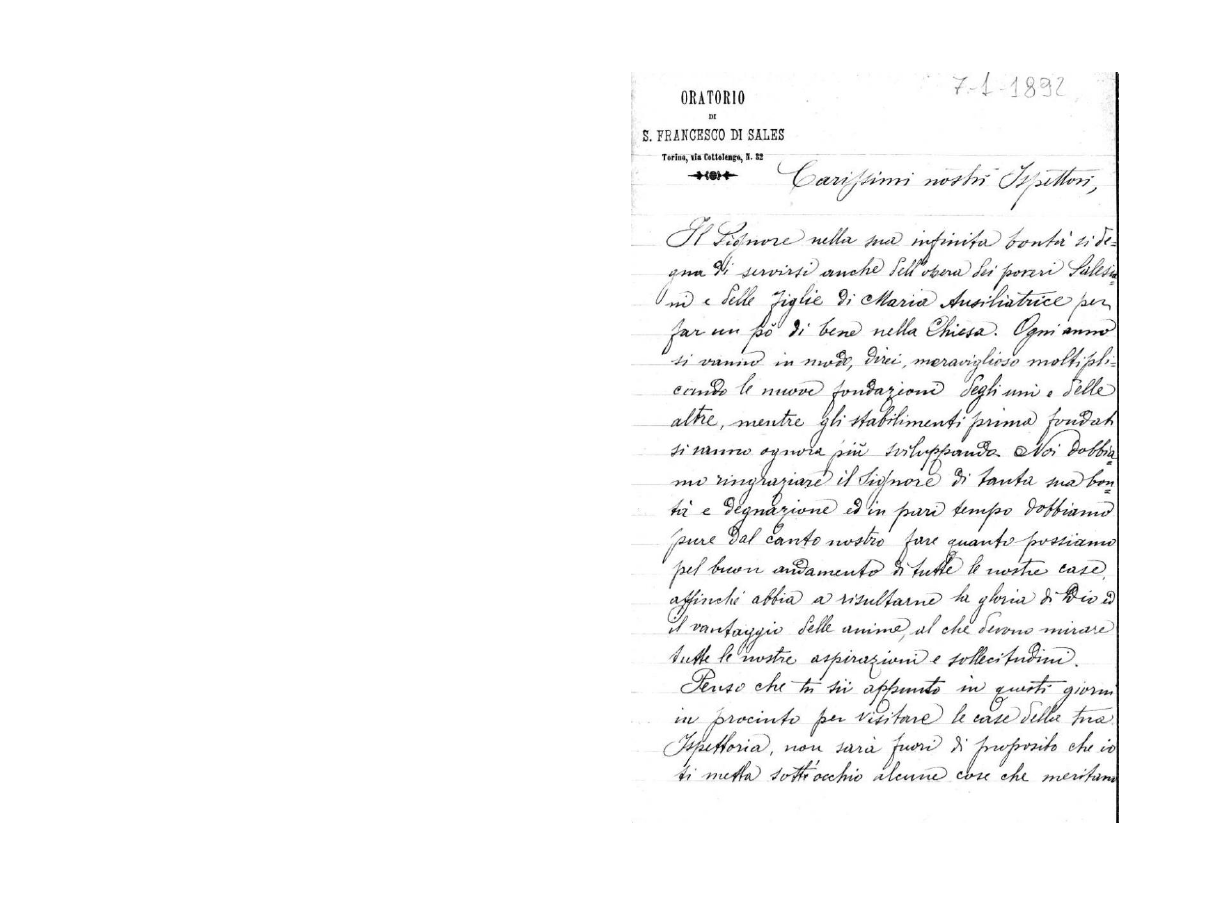 7-1-1892
ORATORIO
DI
S. FRANCESCO DI SALES
Torino, via Cottolengo, N. 32
Carissimi nostri Ispettori,
Il Signore nella sua infinita bontà si de=
gna di servirsi anche dell'opera dei poveri Salesia=
ni e delle Figlie di Maria Ausiliatrice per
far un pò di bene nella Chiesa. Ogni anno
si vanno in modo, direi, meraviglioso moltipli-
cando le nuove fondazioni degli uni e delle
altre, mentre gli stabilimenti prima fondati
si vanno ognora più sviluppando. Noi dobbia=
mo ringraziare il Signore di tanta sua bon=
tà e degnazione ed in pari tempo dobbiamo
pure dal canto nostro fare quanto possiamo
pel buon andamento di tutte le nostre case,
affinché abbia a risultarne la gloria di Dio ed
il vantaggio delle anime, al che devono mirare
tutte le nostre aspirazioni e sollecitudini.
Penso che tu sii appunto in questi giorni
in procinto per visitare le case della tua
Ispettoria, non sarà fuori di proposito che io
ti metta sott'occhio alcune cose che meritano